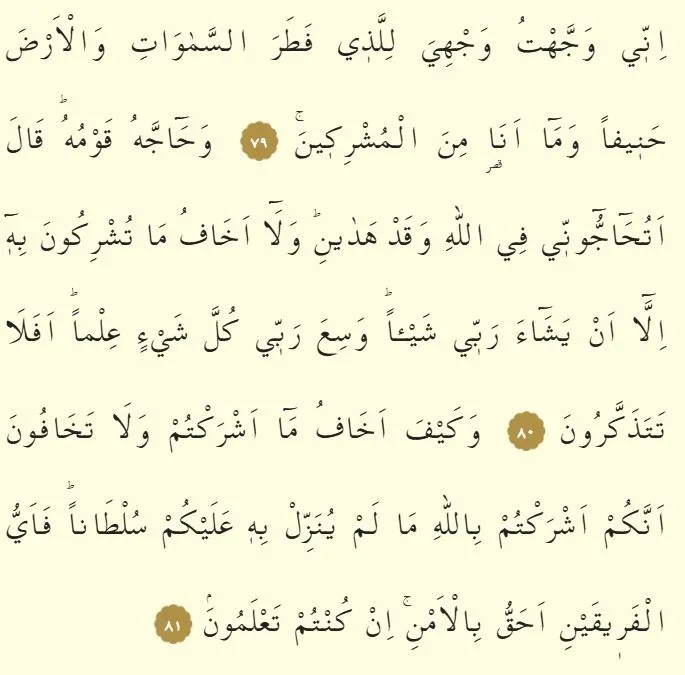 اِنّ۪ي وَجَّهْتُ وَجْهِيَ لِلَّذ۪ي فَطَرَ السَّمٰوَاتِ وَالْاَرْضَ
حَن۪يفاً وَمَٓا اَنَا۬ مِنَ الْمُشْرِك۪ينَۚ ﴿٧٩﴾ وَحَٓاجَّهُ قَوْمُهُۜ قَالَ
اَتُحَٓاجُّٓونّ۪ي فِي اللّٰهِ وَقَدْ هَدٰينِۜ وَلَٓا اَخَافُ مَا تُشْرِكُونَ بِه۪ٓ
اِلَّٓا اَنْ يَشَٓاءَ رَبّ۪ي شَيْـٔاًۜ وَسِعَ رَبّ۪ي كُلَّ شَيْءٍ عِلْماًۜ اَفَلَا
تَتَذَكَّرُونَ ﴿٨٠﴾ وَكَيْفَ اَخَافُ مَٓا اَشْرَكْتُمْ وَلَا تَخَافُونَ
اَنَّكُمْ اَشْرَكْتُمْ بِاللّٰهِ مَا لَمْ يُنَزِّلْ بِه۪ عَلَيْكُمْ سُلْطَاناًۜ فَاَيُّ
الْفَر۪يقَيْنِ اَحَقُّ بِالْاَمْنِۚ اِنْ كُنْتُمْ تَعْلَمُونَۢ ﴿٨١﴾